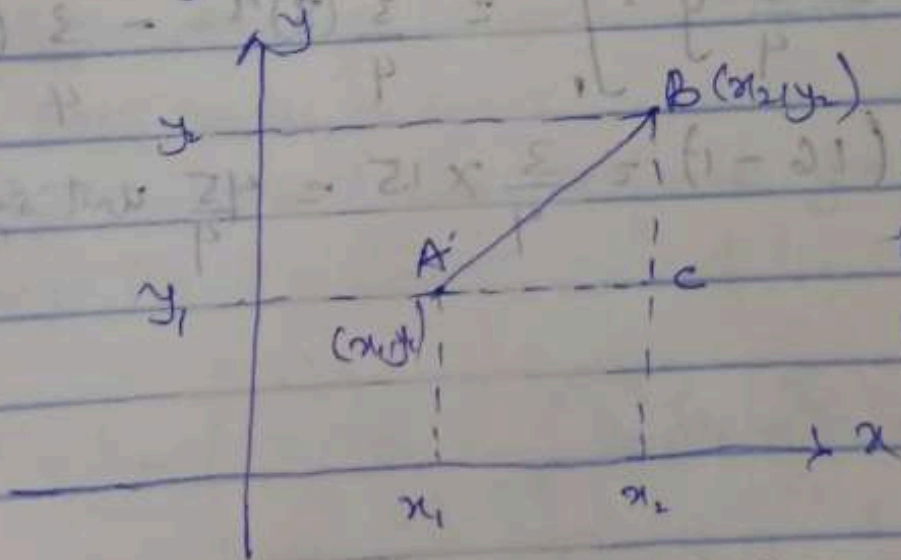 y
B (x₂, y₂)
y₂
A
y₁
C
(x₁, y₁)
x
x₁
x₂